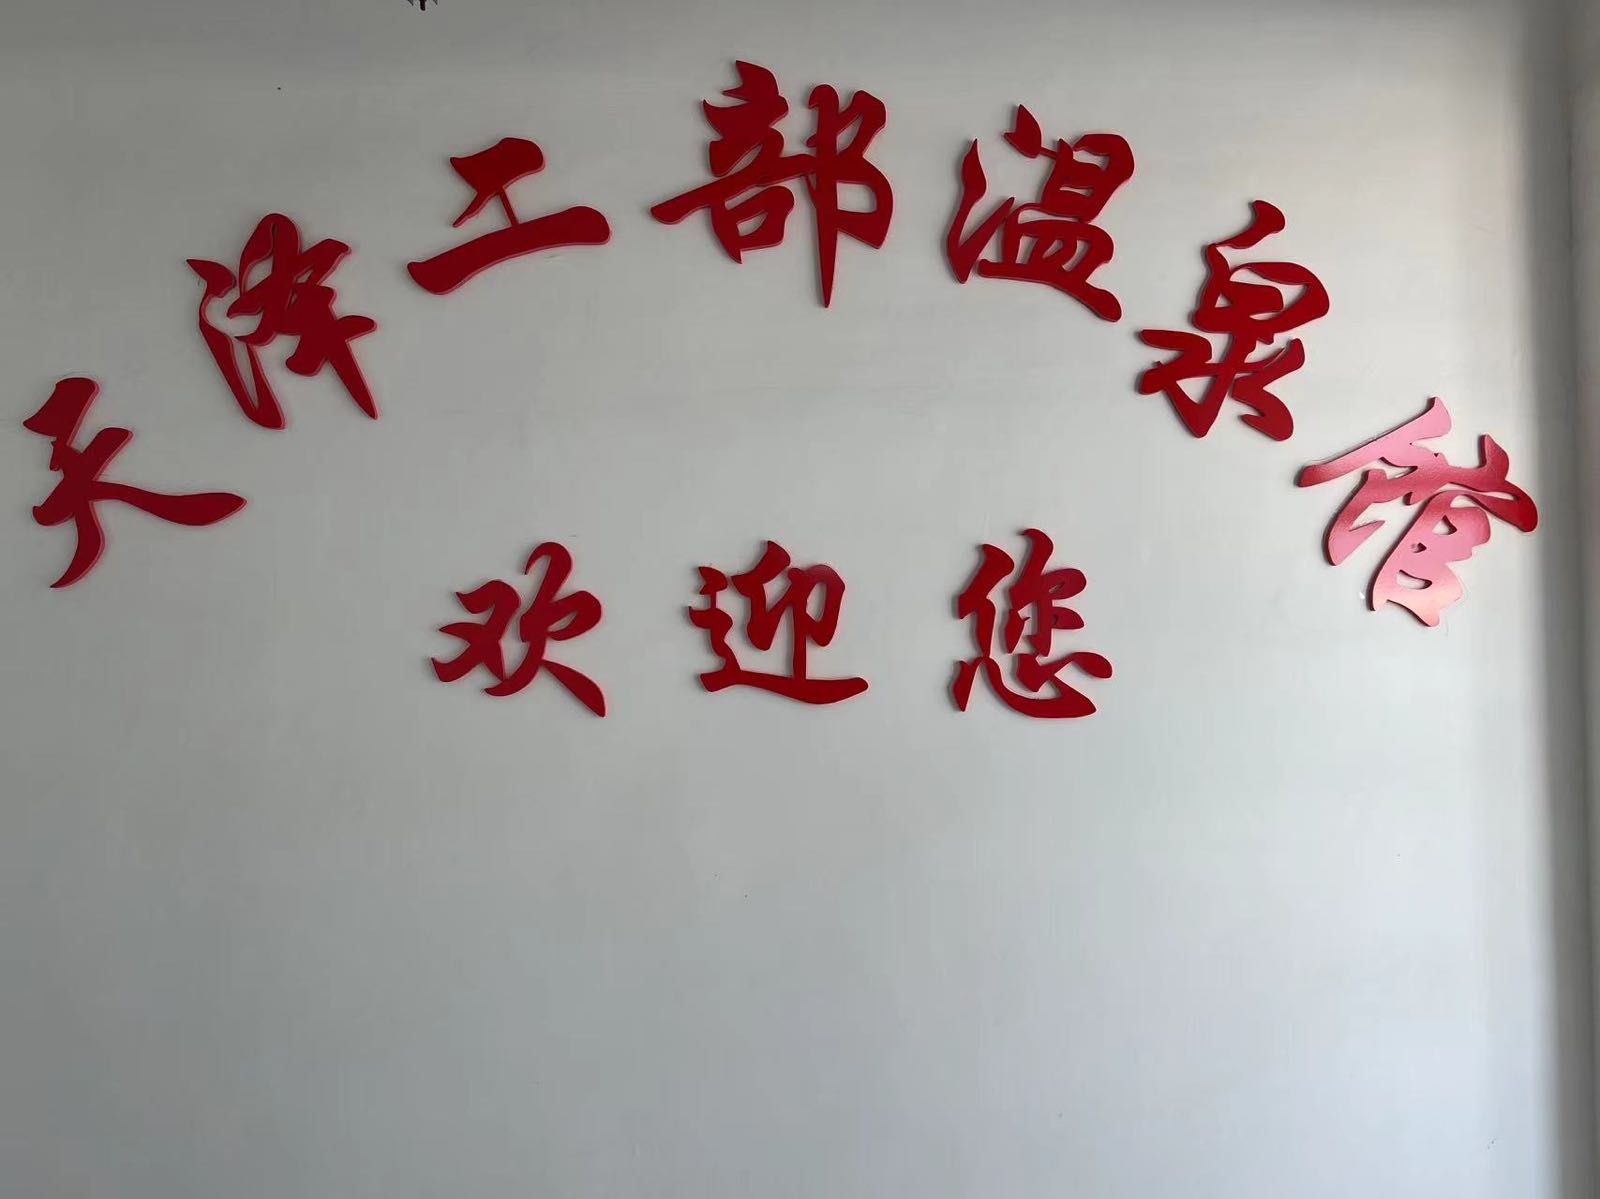 天泽工部温泉馆
欢迎您